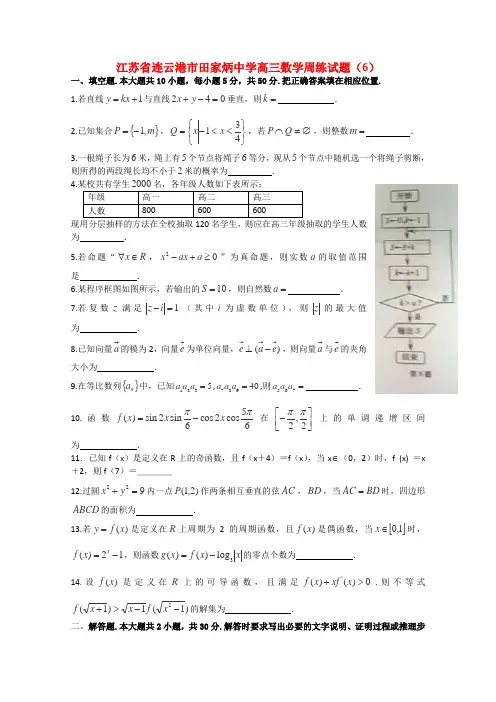 江苏省连云港市田家炳中学高三数学周练试题(6)
一、填空题.本大题共10小题,每小题5分,共50分.把正确答案填在相应位置.
1.若直线 y = kx + 1 与直线 2x + y − 4 = 0 垂直,则 k = .
2.已知集合 P = {−1, m}, Q = {x | −1 < x < 3/4},若 P ∩ Q ≠ ∅,则整数 m = .
3.一根绳子长为6米,绳上有5个节点将绳子6等分,现从5个节点中随机选一个将绳子剪断,
则所得的两段绳长均不小于2米的概率为 .
4.某校共有学生2000名,各年级人数如下表所示:
年级 高一 高二 高三
人数 800 600 600
现用分层抽样的方法在全校抽取120名学生,则应在高三年级抽取的学生人数
为 .
5.若命题“∀x ∈ R, x² − ax + a ≥ 0”为真命题,则实数 a 的取值范围
是 .
6.某程序框图如图所示,若输出的 S = 10,则自然数 a = .
7.若复数 z 满足 |z − i| = 1(其中 i 为虚数单位),则 |z| 的最大值
为 .
8.已知向量 a 的模为2,向量 e 为单位向量, e ⊥ (a − e),则向量 a 与 e 的夹角
大小为 .
9.在等比数列 {aₙ} 中,已知 a₁a₂a₃ = 5, a₇a₈a₉ = 40,则 a₅a₆a₇ = .
10.函数 f(x) = sin 2x sin π/6 − cos 2x cos 5π/6 在 [−π/2, π/2] 上的单调递增区间
为 .
11.已知f(x)是定义在R上的奇函数,且f(x+4)=f(x),当x∈(0,2)时,f (x) =x
+2,则f(7)=
12.过圆 x² + y² = 9 内一点 P(1,2) 作两条相互垂直的弦 AC, BD,当 AC = BD 时,四边形
ABCD 的面积为 .
13.若 y = f(x) 是定义在 R 上周期为2的周期函数,且 f(x) 是偶函数,当 x ∈ [0,1] 时,
f(x) = 2ˣ − 1,则函数 g(x) = f(x) − log₃|x| 的零点个数为 .
14.设 f(x) 是定义在 R 上的可导函数,且满足 f(x) + xf′(x) > 0.则不等式
f(√(x+1)) > √(x−1) f(√(x²−1)) 的解集为 .
二、解答题.本大题共2小题,共30分.解答时要求写出必要的文字说明、证明过程或推理步
开始
输出S
结束
第6题